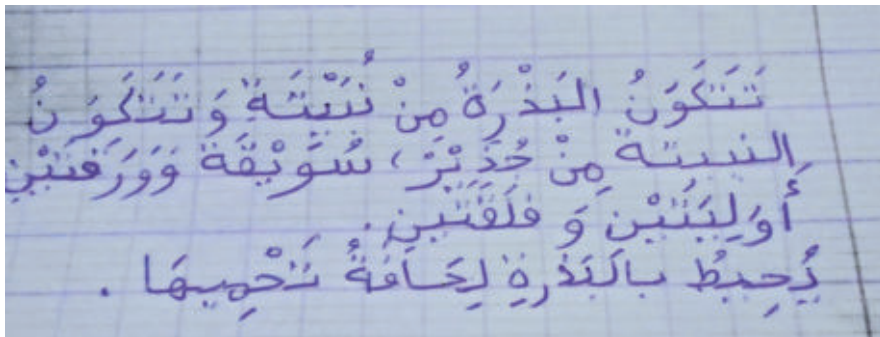 تَتَكَوَنُ البَذْرَةُ مِنْ نُبَيْتَةٍ وَ تَتَكَوَنُ
النبيتة مِنْ جُذَيْرْ، سُوَيْقَة وَوَرَقَتَيْنِ
أَوَلِيَتَيْنِ وَ فَلَقَتَيْنِ.
يُحِيطُ بالبَذْرةِ لِحَافَةُ تَحْمِيهَا .